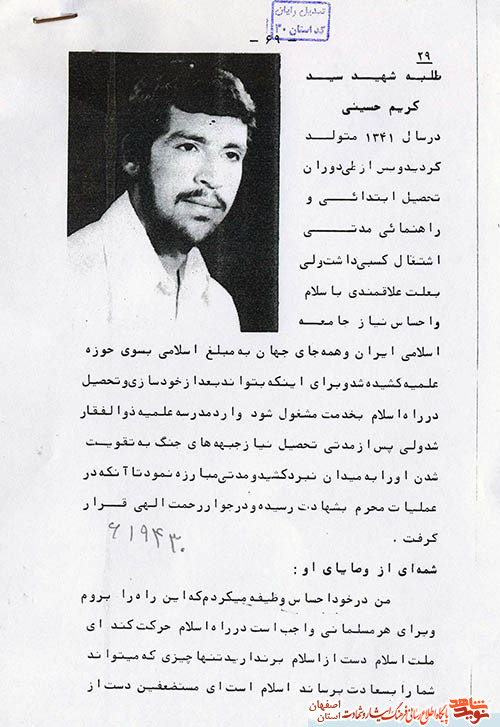 تبدیل رایان
کد استان ۳۰
- ۶۹ -
۲۹
طلبه شهید سید
کریم حسینی
در سال ۱۳۴۱ متولد
گردید و پس از طی دوران
تحصیل ابتدائی و
راهنمائی مدتی
اشتغال کسبی داشت ولی
بعلت علاقمندی باسلام
و احساس نیاز جامعه
اسلامی ایران و همه جای جهان به مبلغ اسلامی بسوی حوزه
علمیه کشیده شد و برای اینکه بتواند بعد از خودسازی و تحصیل
در راه اسلام بخدمت مشغول شود وارد مدرسه علمیه ذوالفقار
شد ولی پس از مدتی تحصیل نیاز جبهه های جنگ به تقویت
شدن او را به میدان نبرد کشید و مدتی مبارزه نمود تا آنکه در
عملیات محرم بشهادت رسیده و در جوار رحمت الهی قرار
گرفت .
۶۱۹۴۳۰
شمه ای از وصایای او :
من در خود احساس وظیفه میکردم که این راه را بروم
و برای هر مسلمانی واجب است در راه اسلام حرکت کند ای
ملت اسلام دست از اسلام برندارید تنها چیزی که میتواند
شما را بسعادت برساند اسلام است ای مستضعفین دست از
نوید شاهد
پایگاه اطلاع رسانی فرهنگ ایثار و شهادت
استان اصفهان